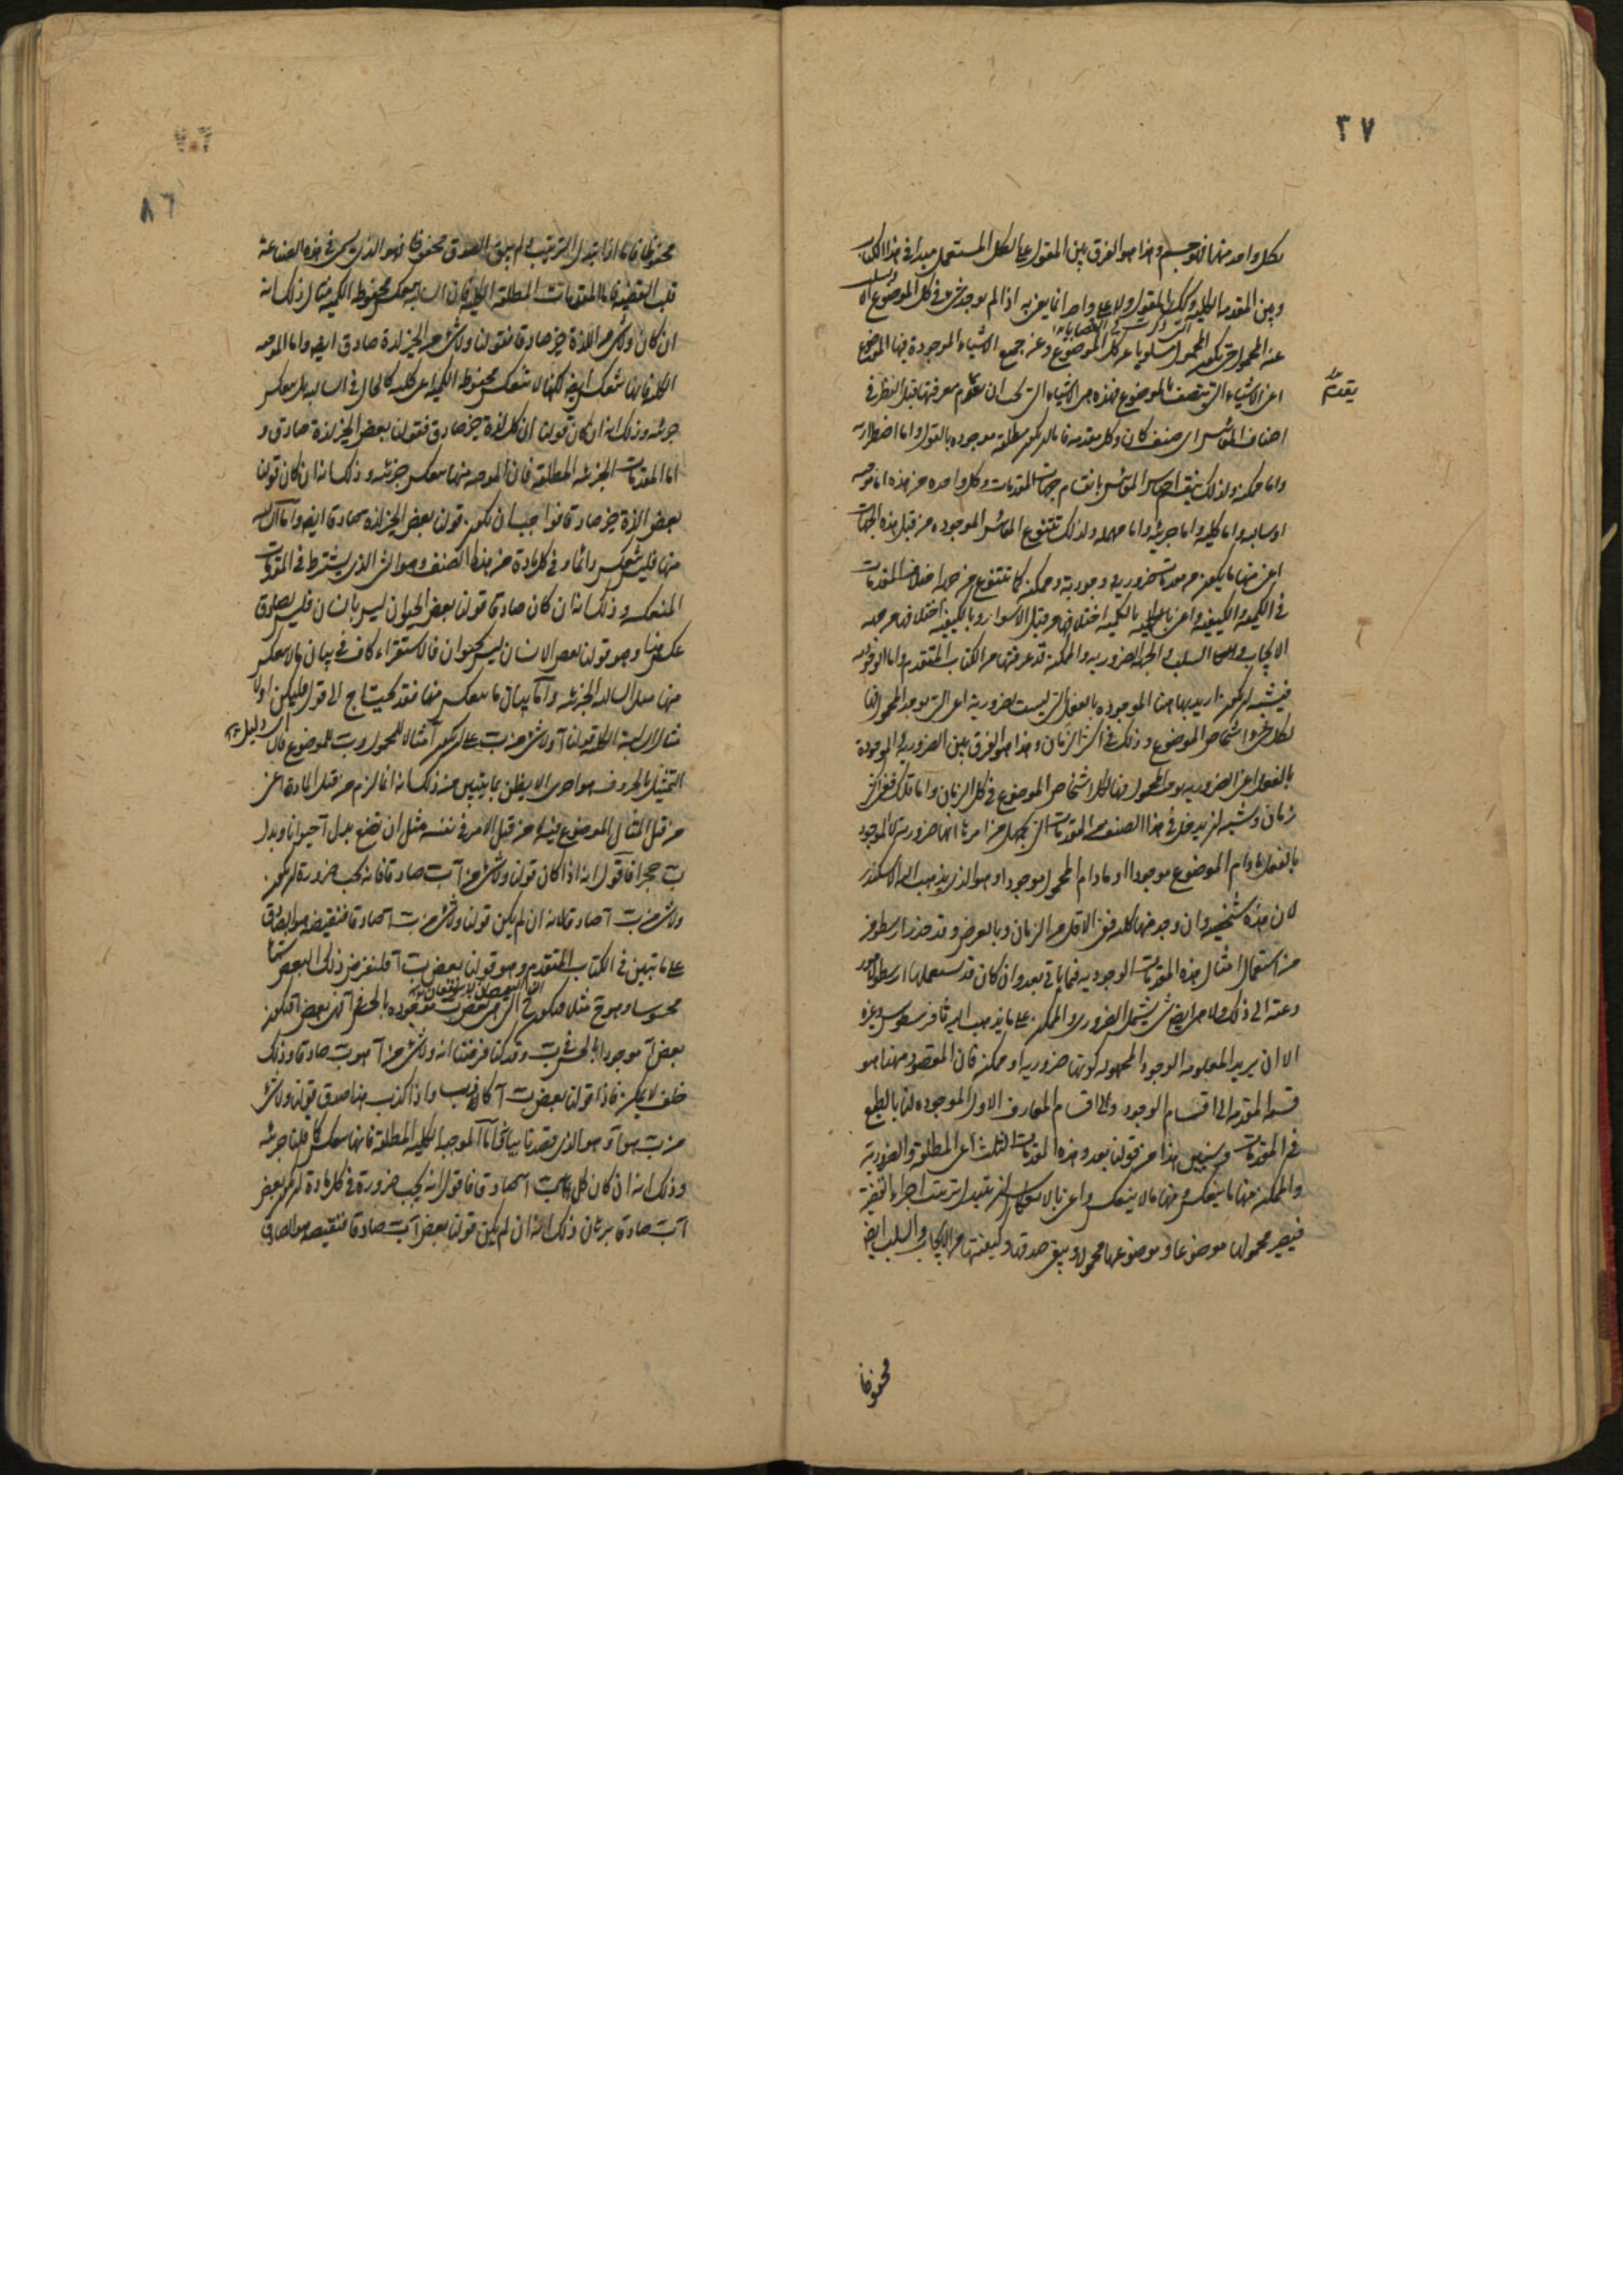 ٣٧
لكل واحد منها فهو جسم وهذا هو الفرق بين المقول على الكل المستعمل مبدأ في هذا الكتاب
وبين المقدمة الكلية وكذلك المقول ولا على واحد انما يعنى به اذا لم يوجد شئ في كل الموضوع الا ويسلب
عنه المحمول حتى يكون المحمول مسلوبا عن كل الموضوع وعن جميع الاشياء الموجودة فيها الموضوع
اعنى الاشياء التى تتصف بالموضوع فهذه هى الاشياء التى يجب ان تقدم معرفتها قبل النظر في
يقدم
اصناف المقائيس اى صنف كان وكل مقدمة فاما ان تكون مطلقة موجودة بالفعل واما اضطرارية
واما ممكنة ولذلك تنقسم اجناس المقائيس بانقسام جهات المقدمات وكل واحدة من هذه اما موجبة
او سالبة واما كلية واما جزئية واما مهملة ولذلك تتنوع المقائيس الموجودة من قبل هذه الجهات
اعنى منها ما يكون من مقدمات ضرورية وجودية وممكنة كما تتنوع من قبل اختلاف المقدمات
في الكمية والكيفية واعنى بالكمية اختلافها من قبل الاسوار وبالكيفية اختلافها من قبل
الايجاب والسلب والجهة الضرورية والممكنة قد عرفتها من الكتاب المتقدم واما الوجودية
فيشبه ان يكون اريد بها هنا الموجودة بالفعل التى ليست ضرورية اعنى التى يوجد المحمول فيها
لكل اشخاص الموضوع وذلك في اكثر الزمان وهذا هو الفرق بين الضرورية والموجودة
بالفعل اعنى الضرورية يوجد المحمول فيها لكل اشخاص الموضوع في كل الزمان واما تلك ففى اكثر
زمان ويشبه ان يدخل في هذا الصنف من المقدمات التى يجهل من امرها انها ضرورية كالموجود
بالفعل ما دام الموضوع موجودا او ما دام المحمول موجودا وهو الذى يذهب اليه الاسكندر
لان هذه شخصية وان وجد فيها كلية ففى الاقل من الزمان وبالعرض وقد حذر ارسطو من
من استعمال امثال هذه المقدمات الوجودية فيما ياتى بعد وان كان قد يستعملها ارسطو لامور
دعته الى ذلك ولا هى ايضا شئ يشتمل الضرورى والممكن على ما يذهب اليه ثاوفرسطوس وغيره
الا ان يريد المعلومة الوجود المجهولة كونها ضرورية او ممكنة فان المقصود ههنا هو
قسمة المقدمة الى اقسام الوجود والى اقسام المعارف الاول الموجودة لنا بالطبع
في المقدمات وسنبين هذا من قولنا بعد وهذه المقدمات الثلث اعنى المطلقة والضرورية
والممكنة منها ما ينعكس ومنها ما لا ينعكس واعنى بالانعكاس ان يتبدل ترتيب اجزاء القضية
فيصير محمولها موضوعا وموضوعها محمولا ويبقى صدقها وكيفيتها من الايجاب والسلب ايضا
محفوظا
٨٦
محفوظا فاما اذا تبدل الترتيب ولم يبق الصدق محفوظا فهو الذى يسمى في هذه الصناعة
قلب القضية فاما المقدمات المطلقة الكلية فان السالبة تنعكس محفوظة الكمية مثال ذلك انه
ان كان ولا شئ من اللذة خير صادقا فقولنا ولا شئ من الخير لذة صادق ايضا واما الموجبة
الكلية فانها تنعكس ايضا لكنها لا تنعكس محفوظة الكمية اعنى كلية كالحال في السالبة بل تنعكس
جزئية وذلك انه ان كان قولنا ان كل لذة خير صادق فقولنا بعض الخير لذة صادق و
اما المقدمات الجزئية المطلقة فان الموجبة منها تنعكس جزئية وذلك انه ان كان قولنا
بعض اللذة خير صادقا فواجب ان يكون قولنا بعض الخير لذة صادقا ايضا واما السالبة
منها فليس تنعكس دائما وفي كل مادة من هذا الصنف وهو الشئ الذى يشترط في المقدمات
المنعكسة وذلك انه ان كان صادقا قولنا بعض الحيوان ليس بانسان فليس يصدق
عكس هذا وهو قولنا بعض الانسان ليس بحيوان فالاستقراء كاف في بيان ما لا ينعكس
منها مثل السالبة الجزئية واما بيان ما ينعكس منها فقد يحتاج الى قول فليكن اولا
مثال السالبة الكلية قولنا آ ولا شئ من ب على ان يكون آ مثالا للمحمول وب للموضوع فان
التمثيل بالحروف هو احرى الا يظن بما يتبين من ذلك انه انما لزم من قبل المادة اعنى
من قبل المثال الموضوع فيه لا من قبل الامر في نفسه مثل ان نضع بدل آ حيوانا وبدل
ب حجرا فاقول انه اذا كان قولنا ولا شئ من آ ب صادقا فانه يجب ضرورة ان يكون
ولا شئ من ب آ صادقا لانه ان لم يكن قولنا ولا شئ من ب آ صادقا فنقيضه هو الصادق
على ما تبين في الكتاب المتقدم وهو قولنا بعض ب آ فلنفرض ذلك البعض شيئا
محسوسا وهو ج مثلا فيكون ج التى هى بعض ب موجودة بالحس في آ فى بعض آ فيكون
بعض آ موجودا بالحس في ب وقد كنا فرضنا انه ولا شئ من آ هو ب صادقا وذلك
خلف لا يمكن فاذا قولنا بعض ب آ كاذب واذا كذب هذا صدق قولنا ولا شئ
من ب هو آ وهو الذى قصدنا بيانه واما الموجبة الكلية المطلقة فانها تنعكس كما قلنا جزئية
وذلك انه ان كان كل ب آ صادقا فاقول انه يجب ضرورة في كل مادة ان يكون بعض
آ ب صادقا برهان ذلك انه ان لم يكن قولنا بعض آ ب صادقا فنقيضه هو الصادق